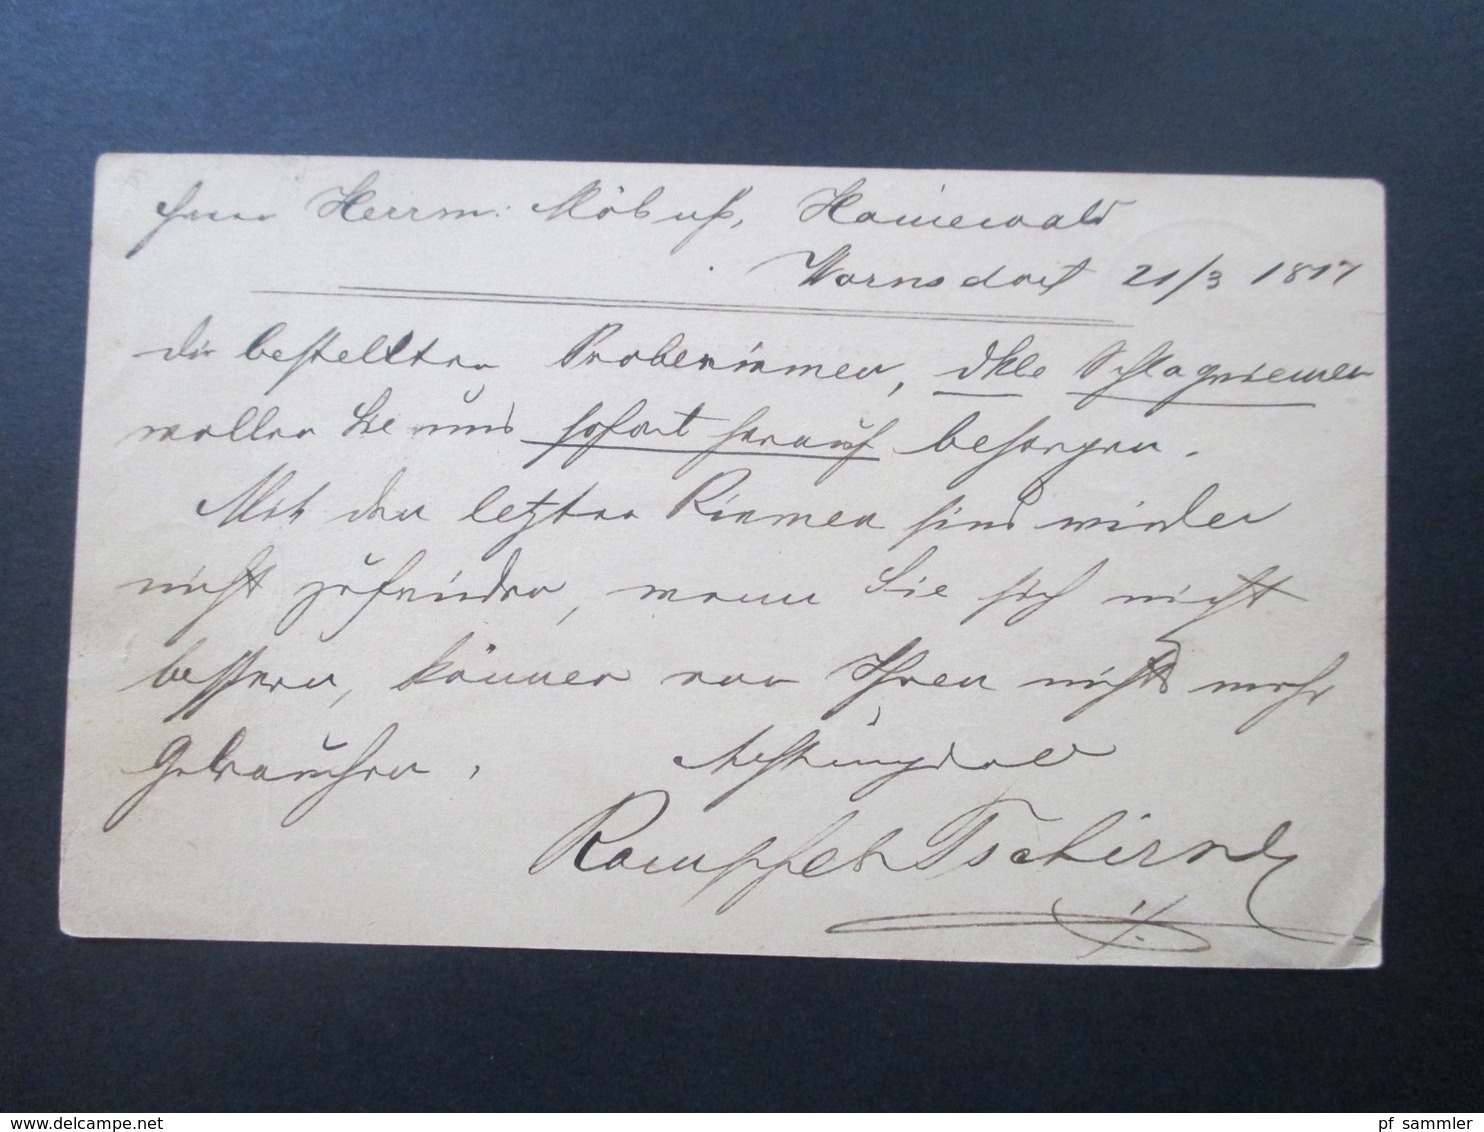 Herrn Herrm: Möbuß, Hainewald
Warnsdorf 21/3 1877
die bestellten Proberiemen, dkle Schlagriemen
wollen Sie uns sofort herauf besorgen.
Mit den letzten Riemen sind wieder
nicht zufrieden, wenn Sie sich nicht
bessern, können von Ihren nichts mehr
gebrauchen.
Achtungsvoll
pf_sammler
www.delcampe.net